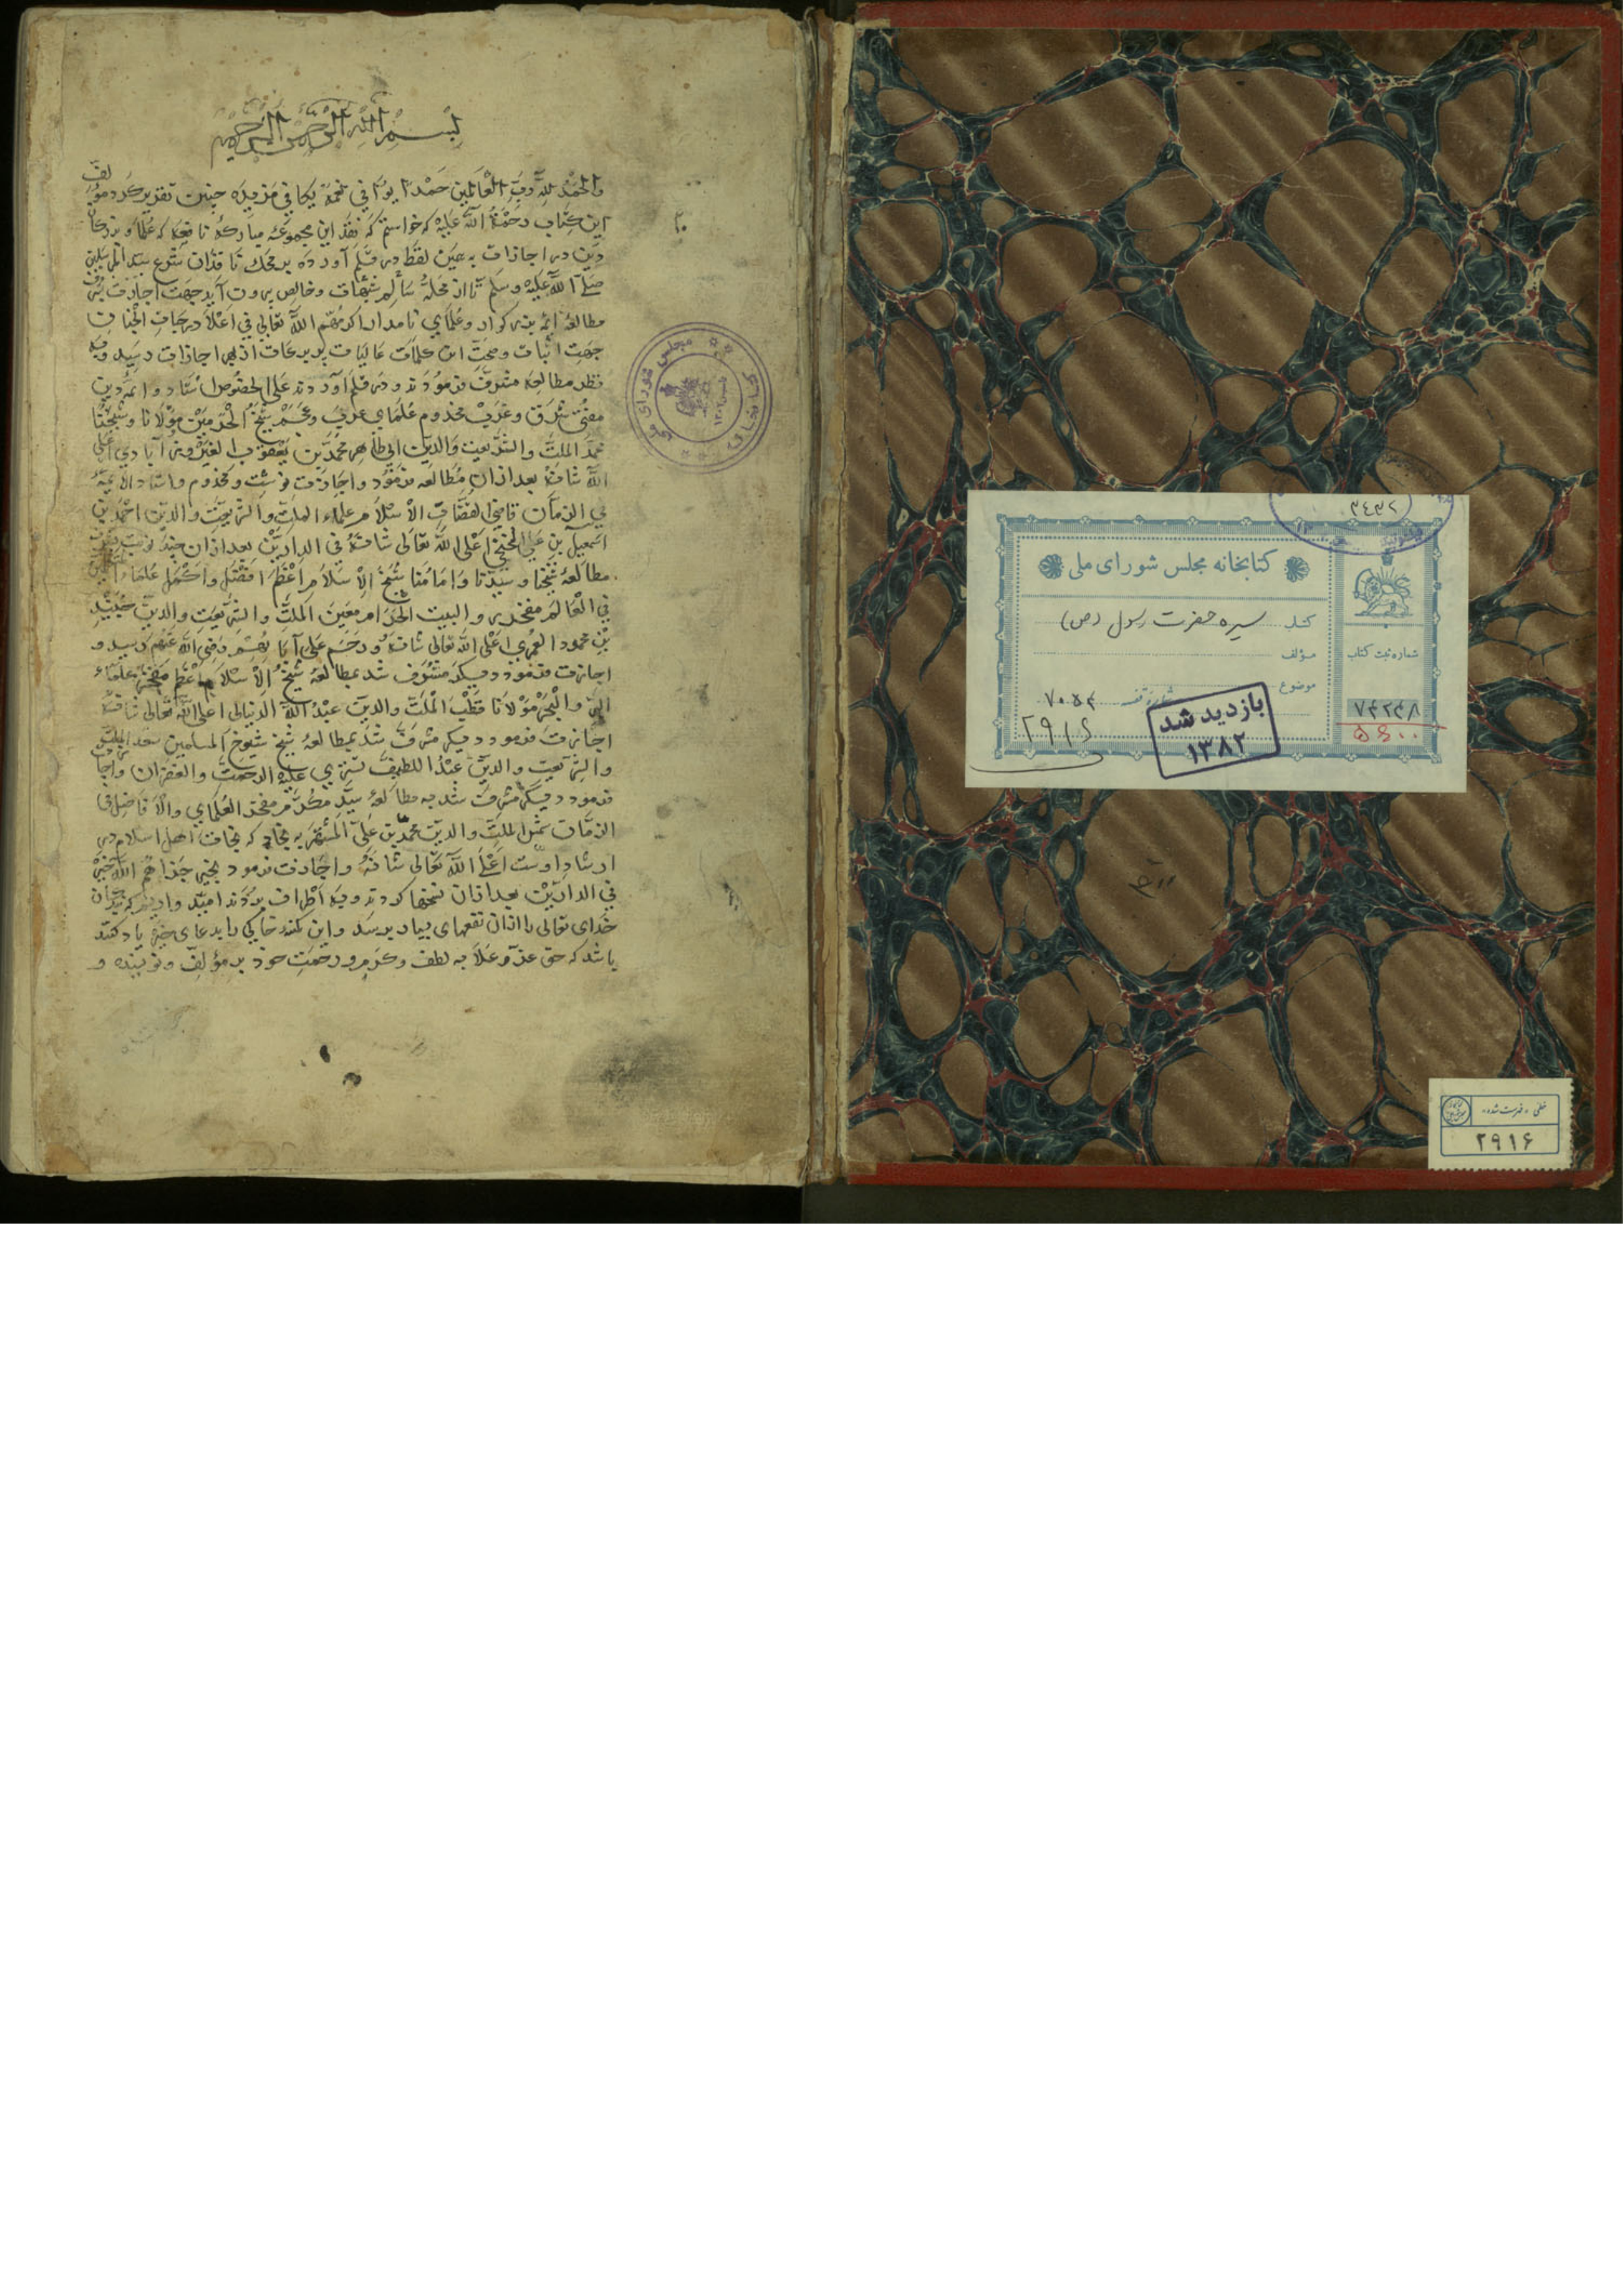 بسم الله الرحمن الرحیم
والحمد لله رب العالمین حمدا یوافی نعمه یکافی مزیده چنین تقریر کرد مؤلف
این کتاب رحمة الله علیه که خواستم که نقد این مجموعه مبارکه نافعه که علما و بزرکان
دین در اجازات به همین لفظ در قلم آورده بر محک ناقدان شرع سید المرسلین
صلی الله علیه وسلم تا از جمله سالم شبهات وخالص برون آید جهت اجازت بشرف
مطالعه ائمه بزرکوار وعلمای نامدار اکرمهم الله تعالی فی اعلا درجات الجنات
جهت اثبات وصحت این کلمات عالیات اجازات رسید وبه
نظر مطالعه مشرف فرمودند ودر قلم آوردند علی الخصوص استاد وائمه دین
مفتی شرق وغرب مخدوم علمای عرب وعجم شیخ الحرمین مولانا وشیخنا
مجد الملة والشریعت والدین ابی طاهر محمد بن یعقوب الفیروزآبادی اعلی
الله شانه بعد ازان مطالعه فرمود واجازت نوشت ومخدوم واستاد الائمه
فی الزمان قاضی القضات الاسلام علماء الملت والشریعت والدین احمد بن
اسمعیل بن علی اعلی الله تعالی شانه فی الدارین بعد ازان
مطالعه شیخنا وسیدنا وامامنا شیخ الاسلام اعظم افضل واکمل علماء
فی العالم مفخر والبیت الحرام معین الملت والشریعت والدین جنید
بن محمود العمری اعلی الله تعالی شانه ورحم علی آبائهم رضی الله عنهم رسید و
اجازت فرمود دیکر مشرف شد بمطالعه شیخ الاسلام اعظم مفخر علماء
البر والبحر مولانا قطب الملت والدین عبد الله اعلی الله تعالی شانه
اجازت فرمود دیکر مشرف شد بمطالعه شیخ شیوخ المسلمین سعد الملت
والشریعت والدین عبد اللطیف علیه الرحمت والغفران واجازت
فرمود دیکر مشرف شد به مطالعه سید مکرم مفخر العلمای والافاضل فی
الزمان شمس الملت والدین محمد بن علی المشتهر به که نجات اهل اسلام در
ارشاد اوست اعلی الله تعالی شانه واجازت فرمود بخیر جزاهم الله خیرا
فی الدارین بعد ازان نسخها کردند وبه اطراف بردند امید وادیم که بندکان
خدای تعالی را ازان نفعهای بسیار برسد واین کمینه خاکی را بدعای خیر یاد کنند
باشد که حق عز وعلا به لطف وکرم ورحمت خود بر مؤلف ونویسنده و
کتابخانه مجلس شورای ملی
۳۴۳۲
کتابخانه مجلس شورای ملی
کتاب سیره حضرت رسول (ص)
مؤلف
شماره ثبت کتاب
موضوع
شماره قفسه ۷۰۵۴
۲۹۱۶
۷۴۲۴۸
۵۶۰۰
بازدید شد
۱۳۸۲
خطی «فهرست شده»
۲۹۱۶